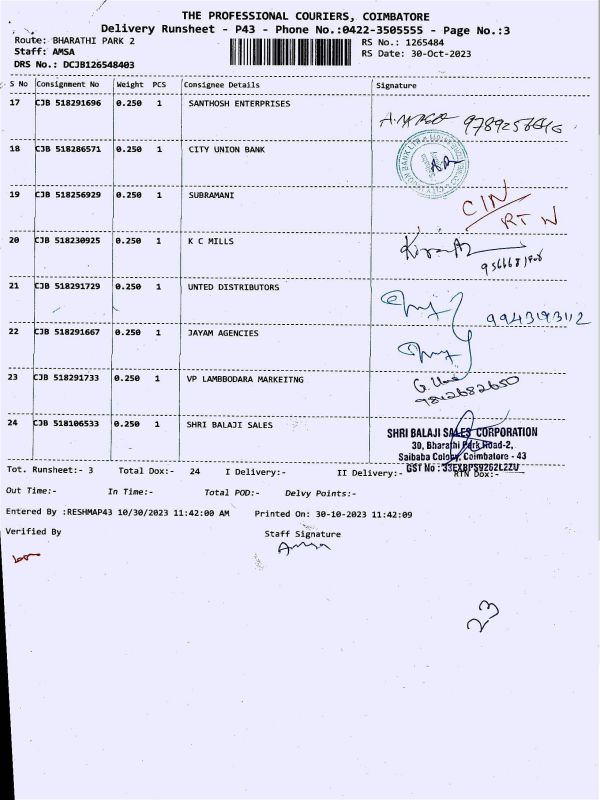 THE PROFESSIONAL COURIERS, COIMBATORE
Delivery Runsheet - P43 - Phone No.:0422-3505555 - Page No.:3
Route: BHARATHI PARK 2 RS No.: 1265484
Staff: AMSA RS Date: 30-Oct-2023
DRS No.: DCJB126548403
S No Consignment No Weight PCS Consignee Details Signature
17 CJB 518291696 0.250 1 SANTHOSH ENTERPRISES
18 CJB 518286571 0.250 1 CITY UNION BANK
19 CJB 518256929 0.250 1 SUBRAMANI
CIN
RTN
20 CJB 518230925 0.250 1 K C MILLS
21 CJB 518291729 0.250 1 UNTED DISTRIBUTORS
9943193112
22 CJB 518291667 0.250 1 JAYAM AGENCIES
23 CJB 518291733 0.250 1 VP LAMBBODARA MARKEITNG
9842682650
24 CJB 518106533 0.250 1 SHRI BALAJI SALES
SHRI BALAJI SALES CORPORATION
30, Bharathi Park Road-2,
Saibaba Colony, Coimbatore - 43
GST No : 33EXBPS9262L2ZU
Tot. Runsheet:- 3 Total Dox:- 24 I Delivery:- II Delivery:- RTN Dox:-
Out Time:- In Time:- Total POD:- Delvy Points:-
Entered By :RESHMAP43 10/30/2023 11:42:00 AM Printed On: 30-10-2023 11:42:09
Verified By Staff Signature
Amsa
23